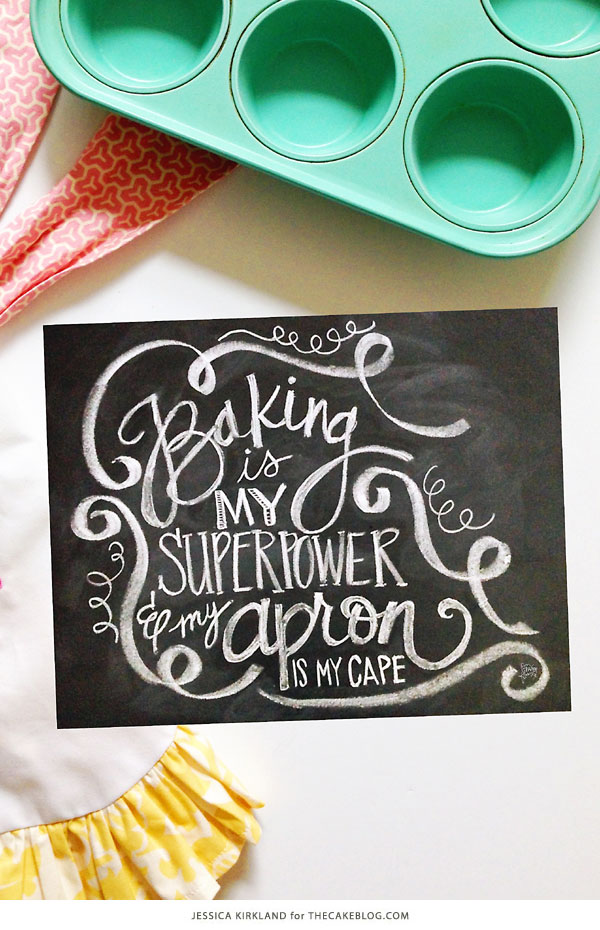 Baking
is
MY
SUPERPOWER
& my apron
IS MY CAPE
JESSICA KIRKLAND for THECAKEBLOG.COM